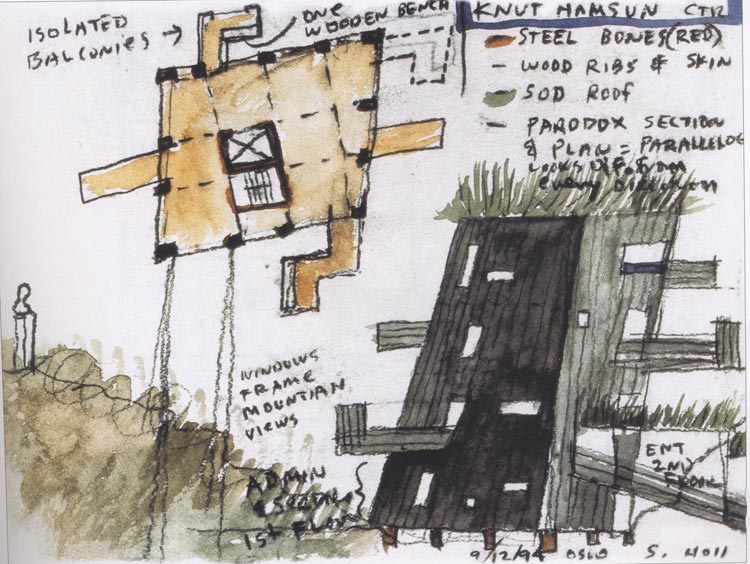 ISOLATED
BALCONIES
ONE
WOODEN BENCH
KNUT HAMSUN CTR
STEEL BONES (RED)
— WOOD RIBS & SKIN
SOD ROOF
— PARODOX SECTION
& PLAN = PARALLELOG
LOOKS DIF. FROM
EVERY DIRECTION
WINDOWS
FRAME
MOUNTIAN
VIEWS
ADMIN
1st FLOOR
ENT
2ND
FLOOR
9/12/94 OSLO S. HOLL